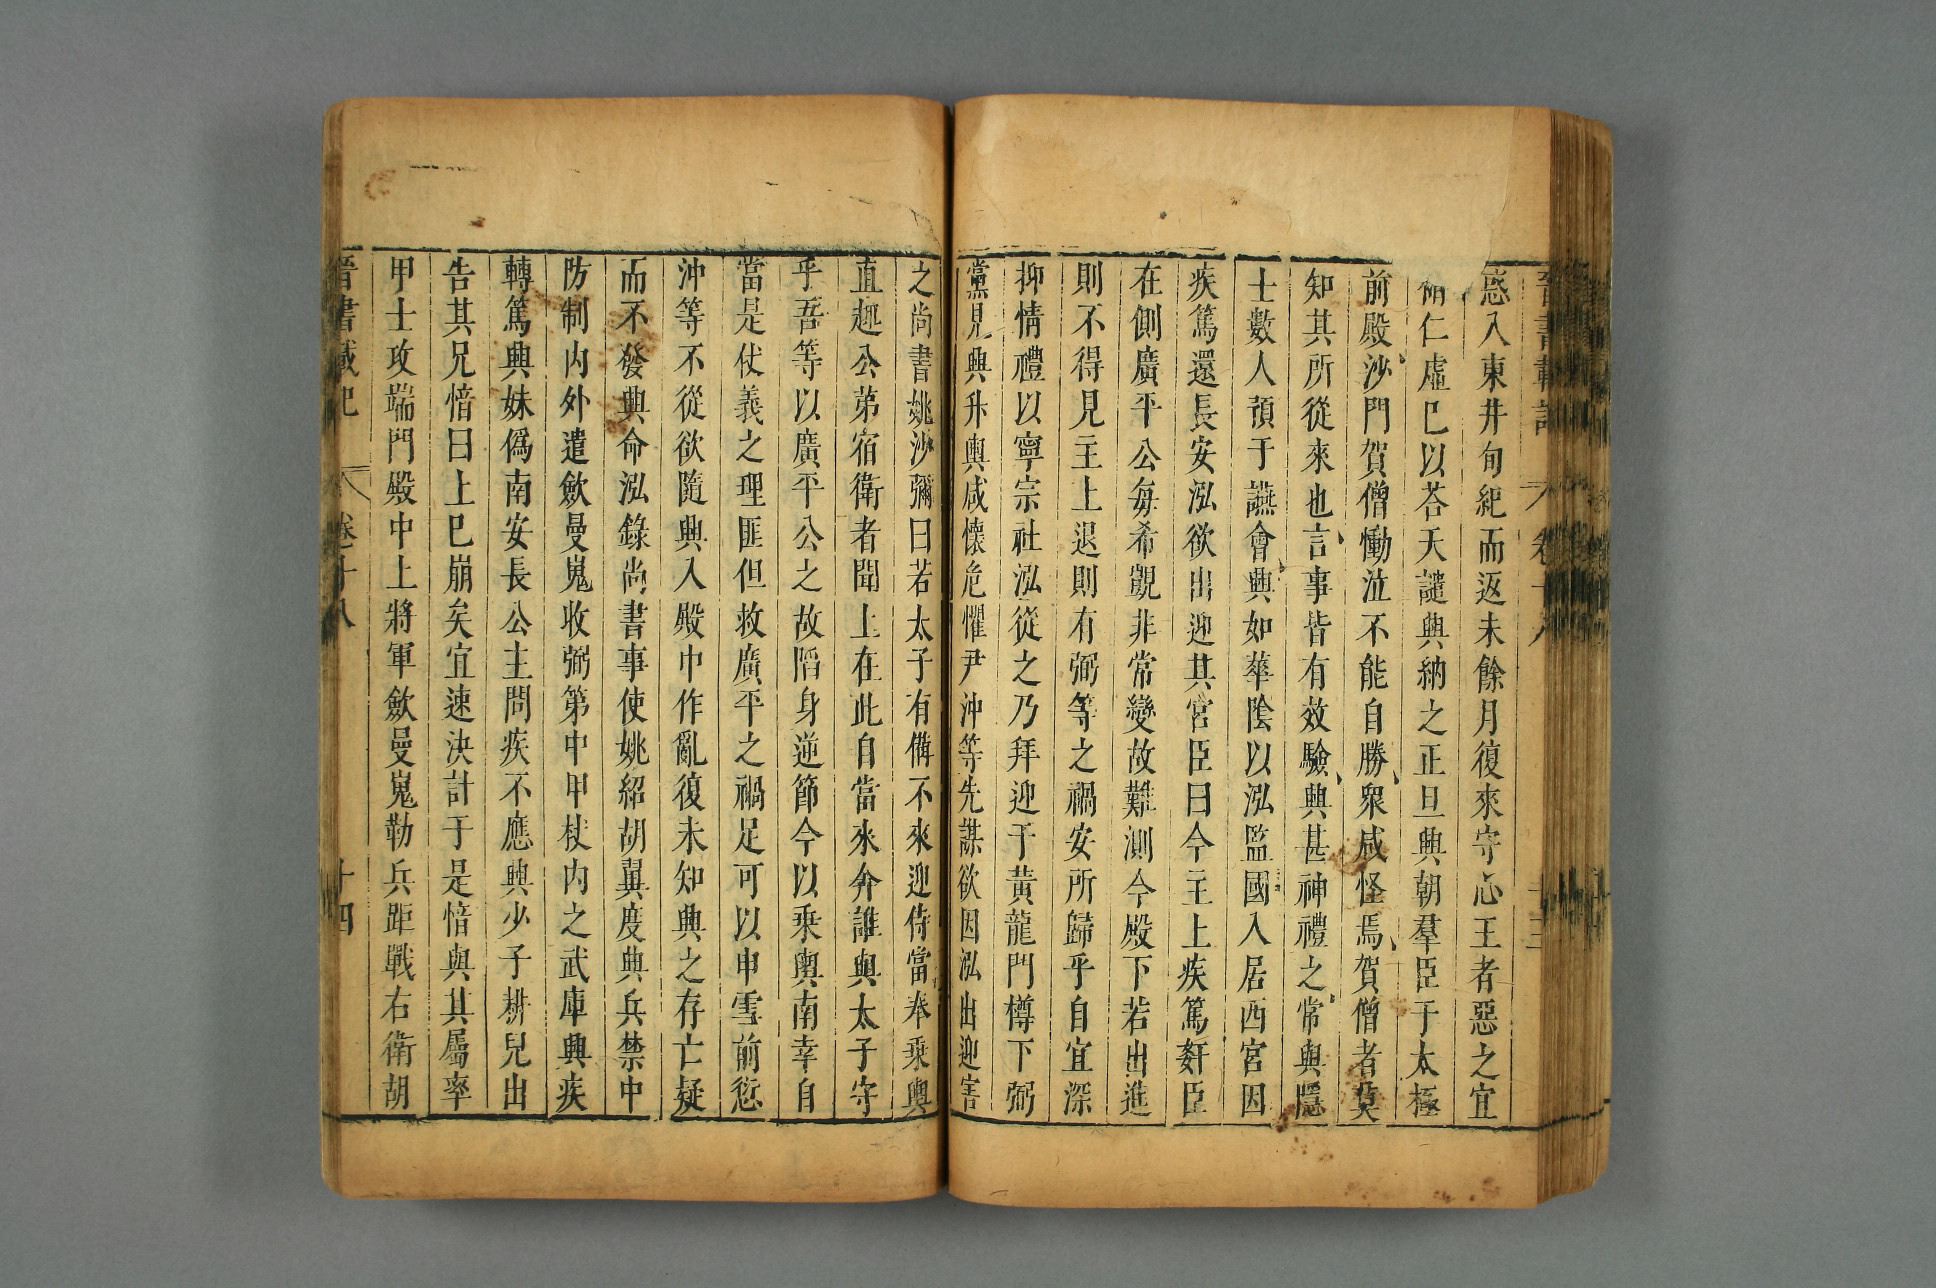 晉書載記 卷十八 十三
惑入東井旬紀而返未餘月復來守心王者惡之宜
脩仁虛已以荅天譴興納之正旦興朝羣臣于太極
前殿沙門賀僧慟泣不能自勝衆咸怪焉賀僧者莫
知其所從來也言事皆有效驗興甚神禮之常與隱
士數人預于讌會興如華陰以泓監國入居西宮因
疾篤還長安泓欲出迎其宮臣曰今主上疾篤姦臣
在側廣平公每希覬非常變故難測今殿下若出進
則不得見主上退則有弼等之禍安所歸乎自宜深
抑情禮以寧宗社泓從之乃拜迎于黃龍門樽下弼
黨見興升輿咸懷危懼尹沖等先謀欲因泓出迎害
之尚書姚沙彌曰若太子有備不來迎侍當奉乘輿
直趣公第宿衛者聞上在此自當來奔誰與太子守
乎吾等以廣平公之故陷身逆節今以乘輿南幸自
當是仗義之理匪但救廣平之禍足可以申雪前愆
沖等不從欲隨興入殿中作亂復未知興之存亡疑
而不發興命泓錄尚書事使姚紹胡翼度典兵禁中
防制内外遣歛曼嵬收弼第中甲杖内之武庫興疾
轉篤興妹僞南安長公主問疾不應興少子耕兒出
告其兄愔曰上已崩矣宜速決計于是愔與其屬率
甲士攻端門殿中上將軍歛曼嵬勒兵距戰右衛胡
晉書載記 卷十八 十四